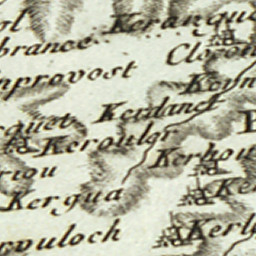 Keranque
brance
Cloco
nprovost
Keyn
Kerdanet
quet
Keroulor
Kerhou
riou
Ke
Kergua
Kerl
rouloch